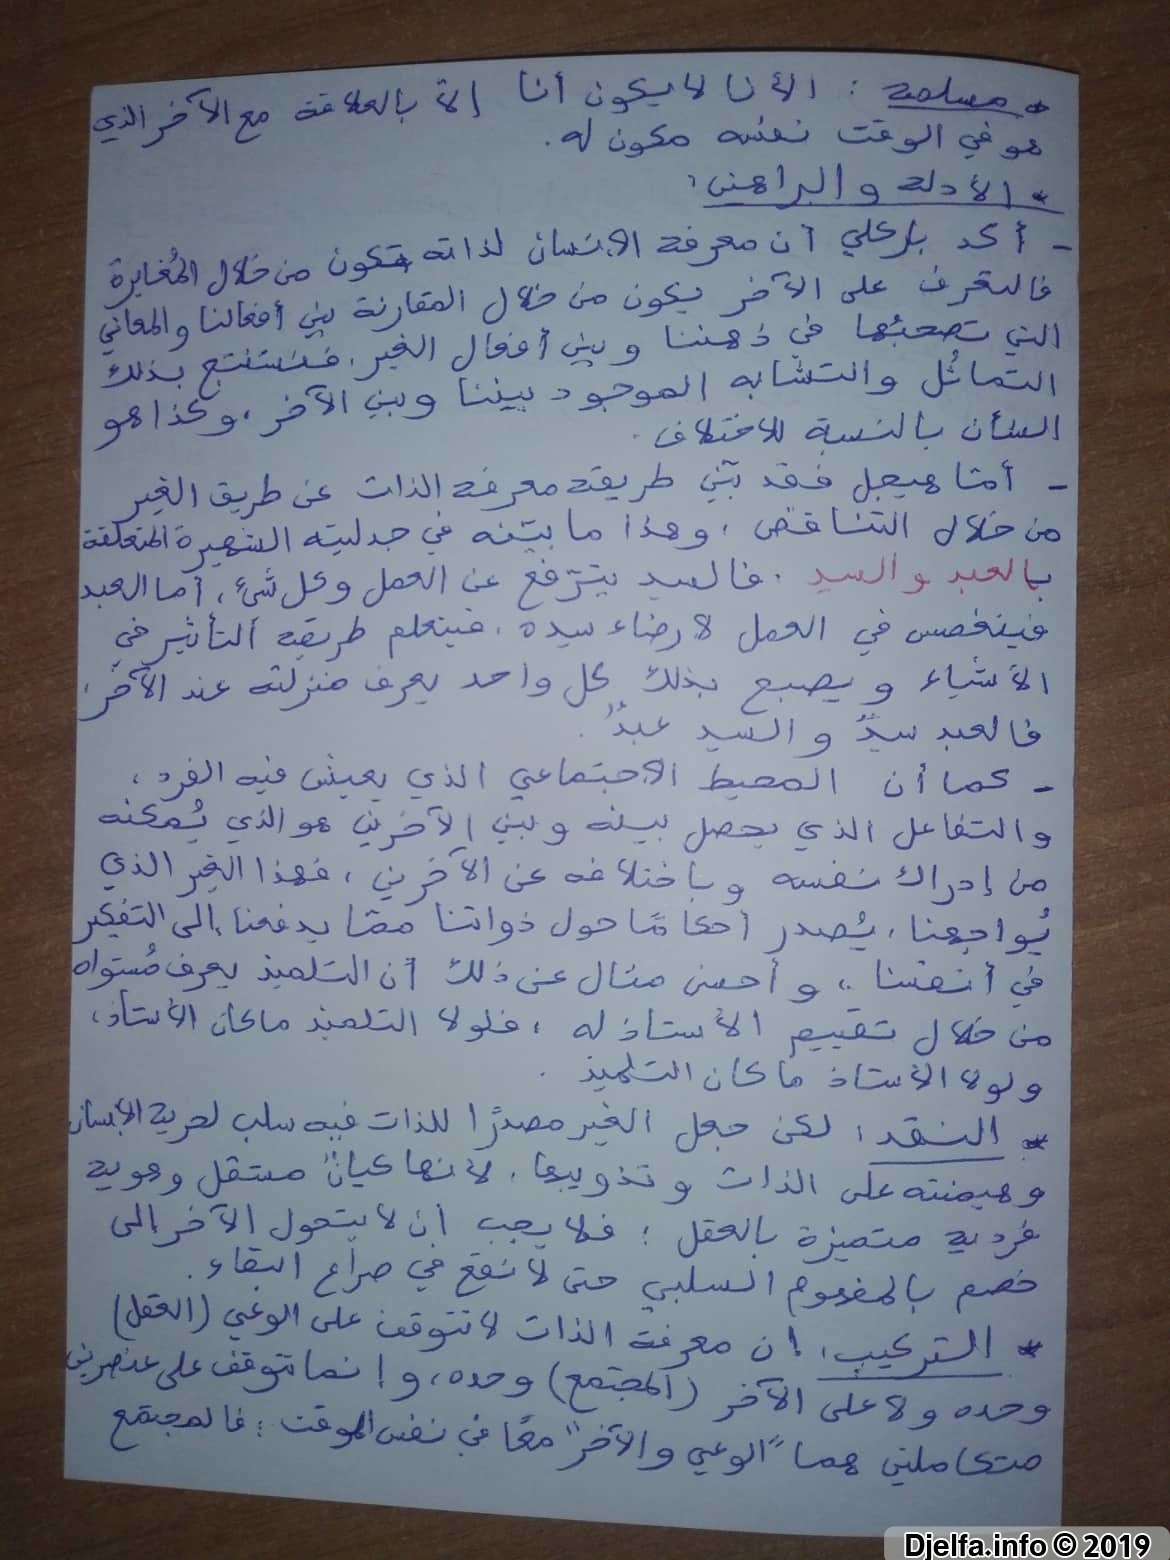 * مسلمة : الأنا لا يكون أنا إلاّ بالعلاقة مع الآخر الذي
هو في الوقت نفسه مكون له .
* الأدلة والبراهين :
- أكد باركلي أن معرفة الإنسان لذاته تكون من خلال المُغايرة
فالتعرف على الآخر يكون من خلال المقارنة بين أفعالنا والمعاني
التي تصحبُها في ذهننا وبين أفعال الغير ، فنستنتج بذلك
التماثُل والتشابه الموجود بيننا وبين الآخر ، وكذا هو
الشأن بالنسبة للاختلاف .
- أمّا هيجل فقد بيّن طريقة معرفة الذات عن طريق الغير
من خلال التناقض ، وهذا ما بيّنه في جدليته الشهيرة المتعلقة
بالعبد والسيد . فالسيد يترفع عن العمل وكل شيء ، أما العبد
فينغمس في العمل لارضاء سيده ، فيتعلم طريقة التأثير في
الأشياء ويصبح بذلك كل واحد يعرف منزلته عند الآخر ،
فالعبد سيدٌ والسيد عبدٌ .
- كما أن المحيط الاجتماعي الذي يعيش فيه الفرد ،
والتفاعل الذي يحصل بينه وبين الآخرين هو الذي يُمكنه
من إدراك نفسه وباختلافه عن الآخرين ، فهذا الغير الذي
يُواجهنا ، يُصدر أحكامًا حول ذواتنا ممّا يدفعنا إلى التفكير
في أنفسنا .. وأحسن مثال عن ذلك أن التلميذ يعرف مُستواه
من خلال تقييم الأستاذ له ، فلولا التلميذ ماكان الأستاذ ،
ولولا الأستاذ ماكان التلميذ .
* النقد : لكن جعل الغير مصدرًا للذات فيه سلب لحرية الإنسان
وهيمنته على الذات وتذويبها ، لأنها كيانٌ مستقل وهوية
فردية متميزة بالعقل ؛ فلا يجب أن لا يتحول الآخر إلى
خصم بالمفهوم السلبي حتى لا نقع في صراع البقاء .
* التركيب : إن معرفة الذات لا تتوقف على الوعي (العقل)
وحده ولا على الآخر (المجتمع) وحده ، وإنما تتوقف على عنصرين
متكاملين هما "الوعي والآخر" معًا في نفس الوقت ؛ فالمجتمع
Djelfa.info © 2019